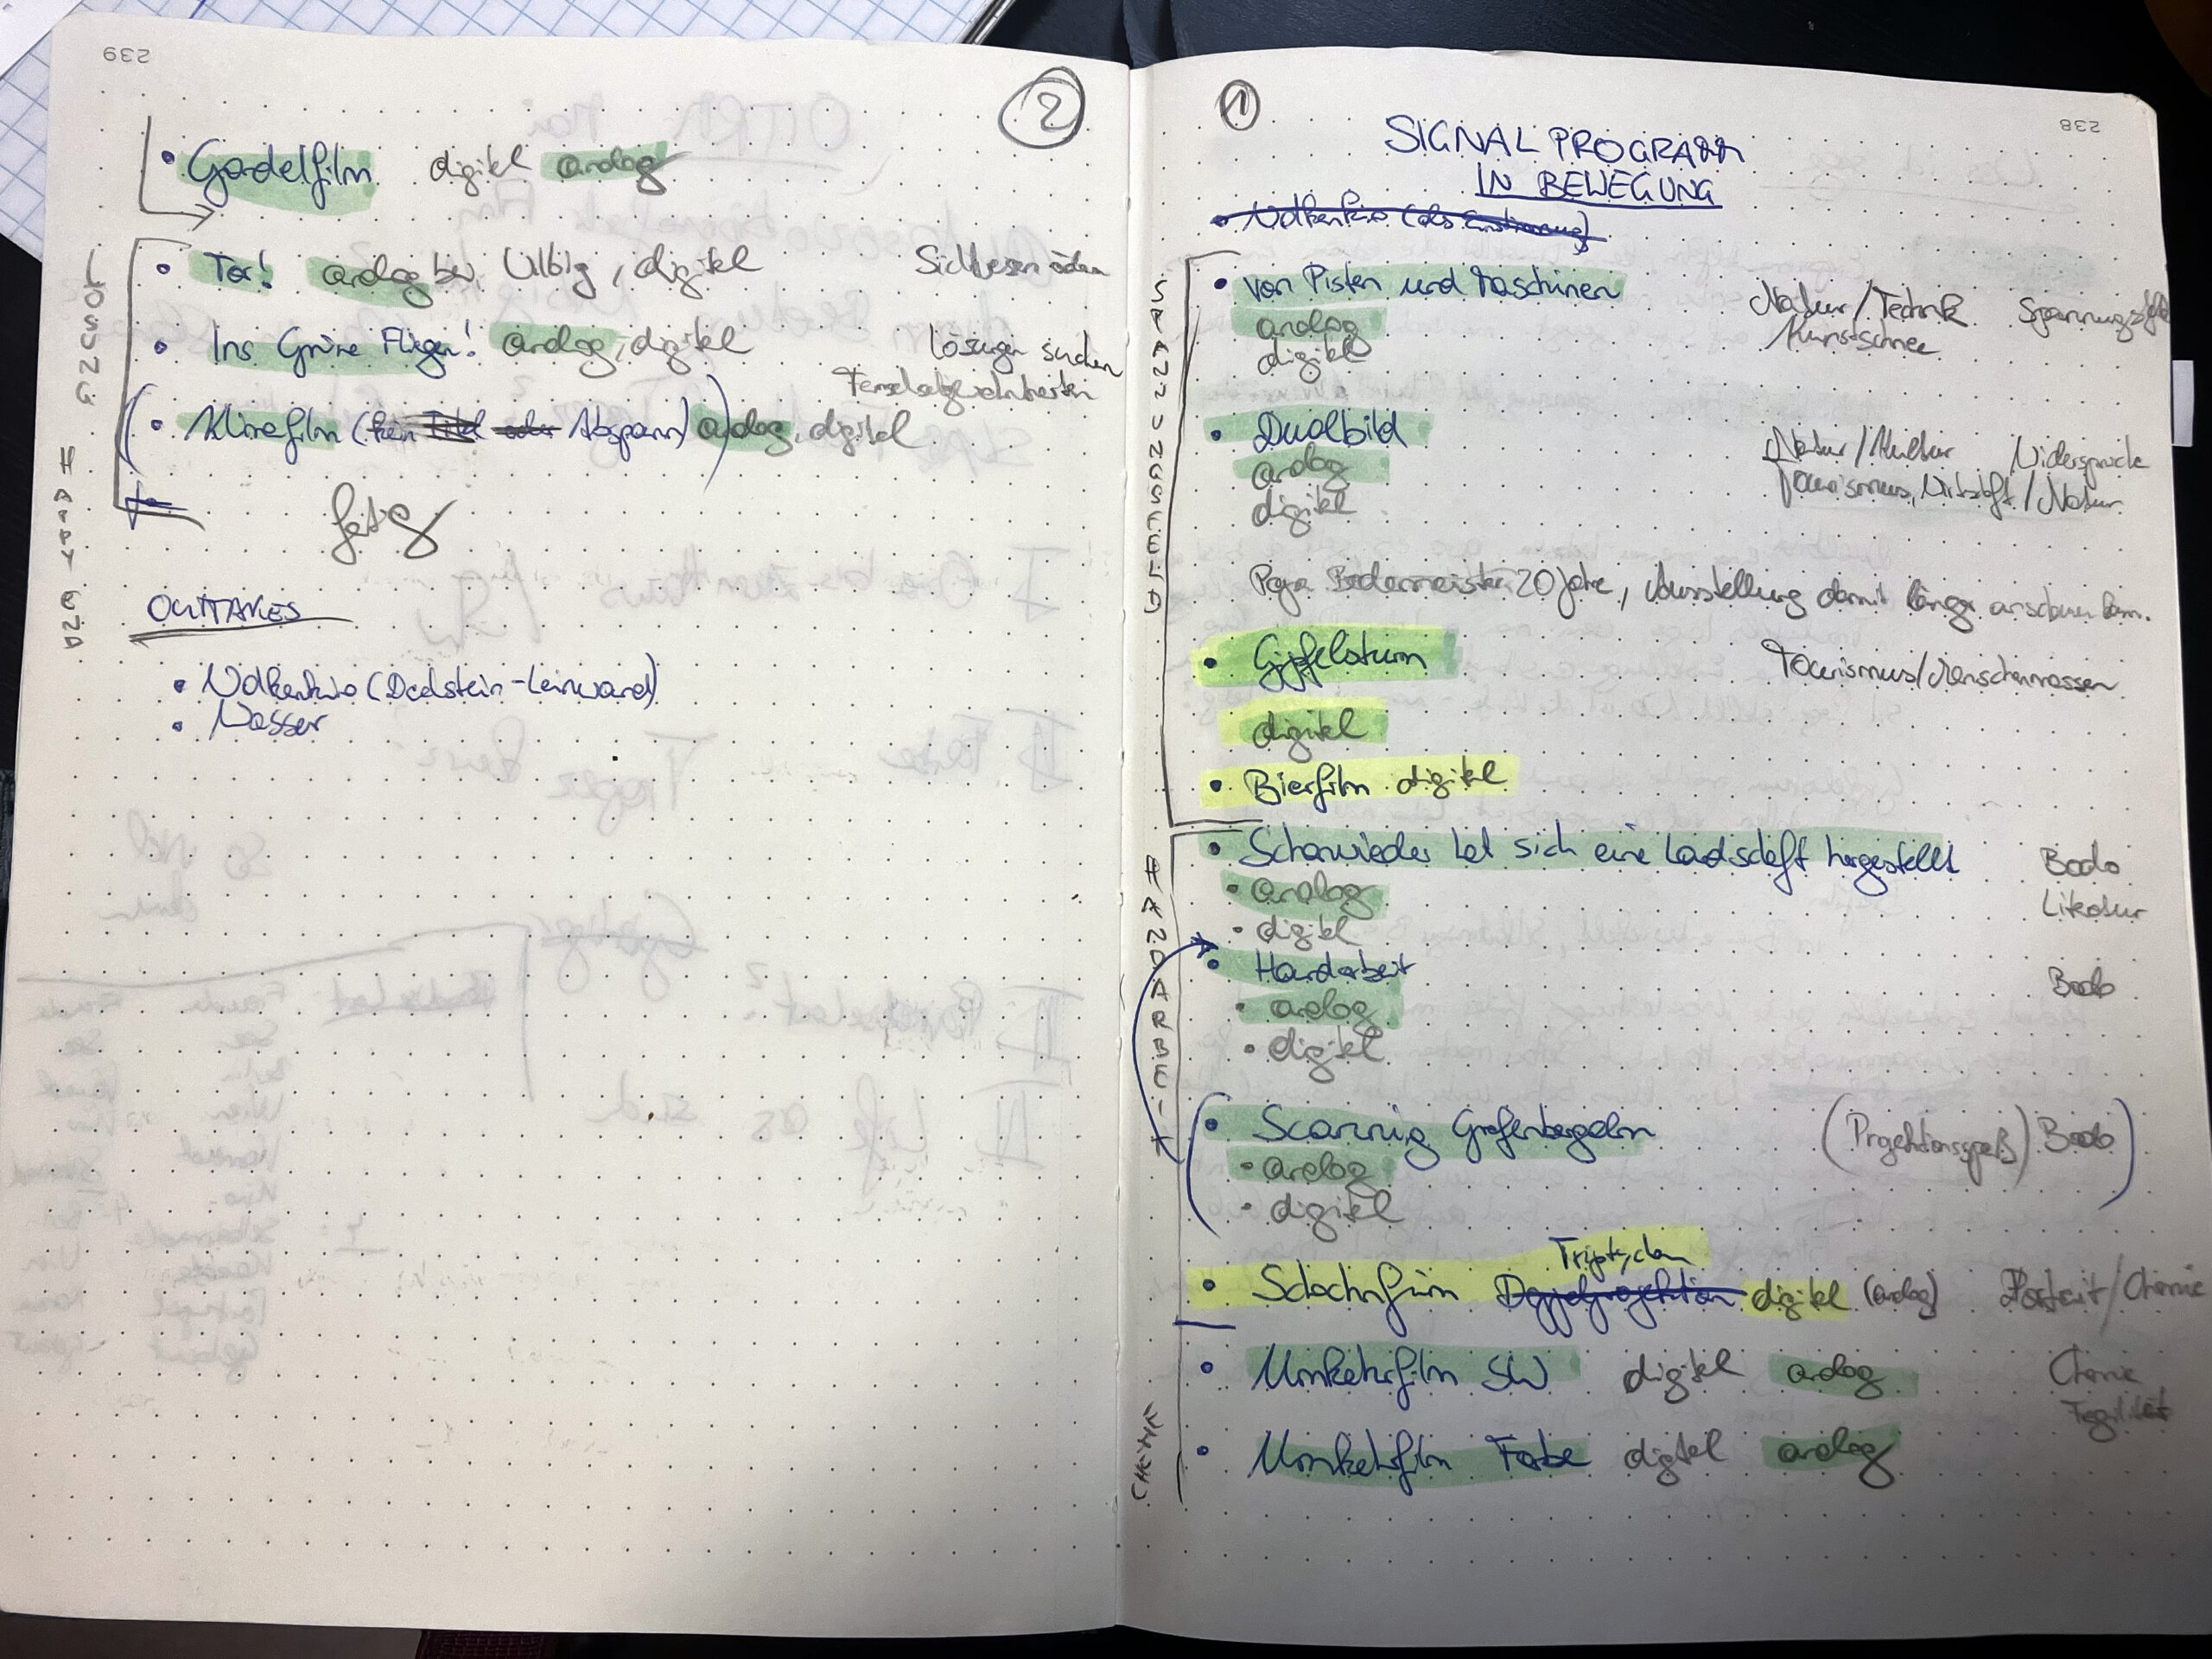 239
2
Gondelfilm digital analog
Tor! analog bei Ulbig, digital
Ins Grüne Fliegen! analog, digital Lösungen suchen
(kein Titel oder Abspann) analog, digital
fertig
LÖSUNG
HAPPY END
OUTTAKES
Wolkenkino (Dachstein-Leinwand)
Wasser
238
1
SIGNAL PROGRAMM
IN BEWEGUNG
Wolkenkino (als Einstimmung)
SPATZUNGSLEJA
von Pisten und Maschinen Natur/Technik
analog Kunstschnee
digital
Dualbild Natur/Kultur Widersprüche
analog Tourismus, Wirtschaft/Natur
digital
20 Jahre, Ausstellung damit länger anschauen kann.
Gipfelsturm Tourismus/Menschenmassen
digital
Bierfilm digital
HANDARBEIT
Schonwieder hat sich eine Landschaft hergestellt Bodo
analog Literatur
digital
Handarbeit Bodo
analog
digital
Scanning Grafenbergalm (Projektionsspaß) Bodo
analog
digital
Triptychon
Doppelprojektion digital (analog) Portrait/Chemie
CHEMIE
Umkehrfilm SW digital analog Chemie
Fragilität
Umkehrfilm Farbe digital analog